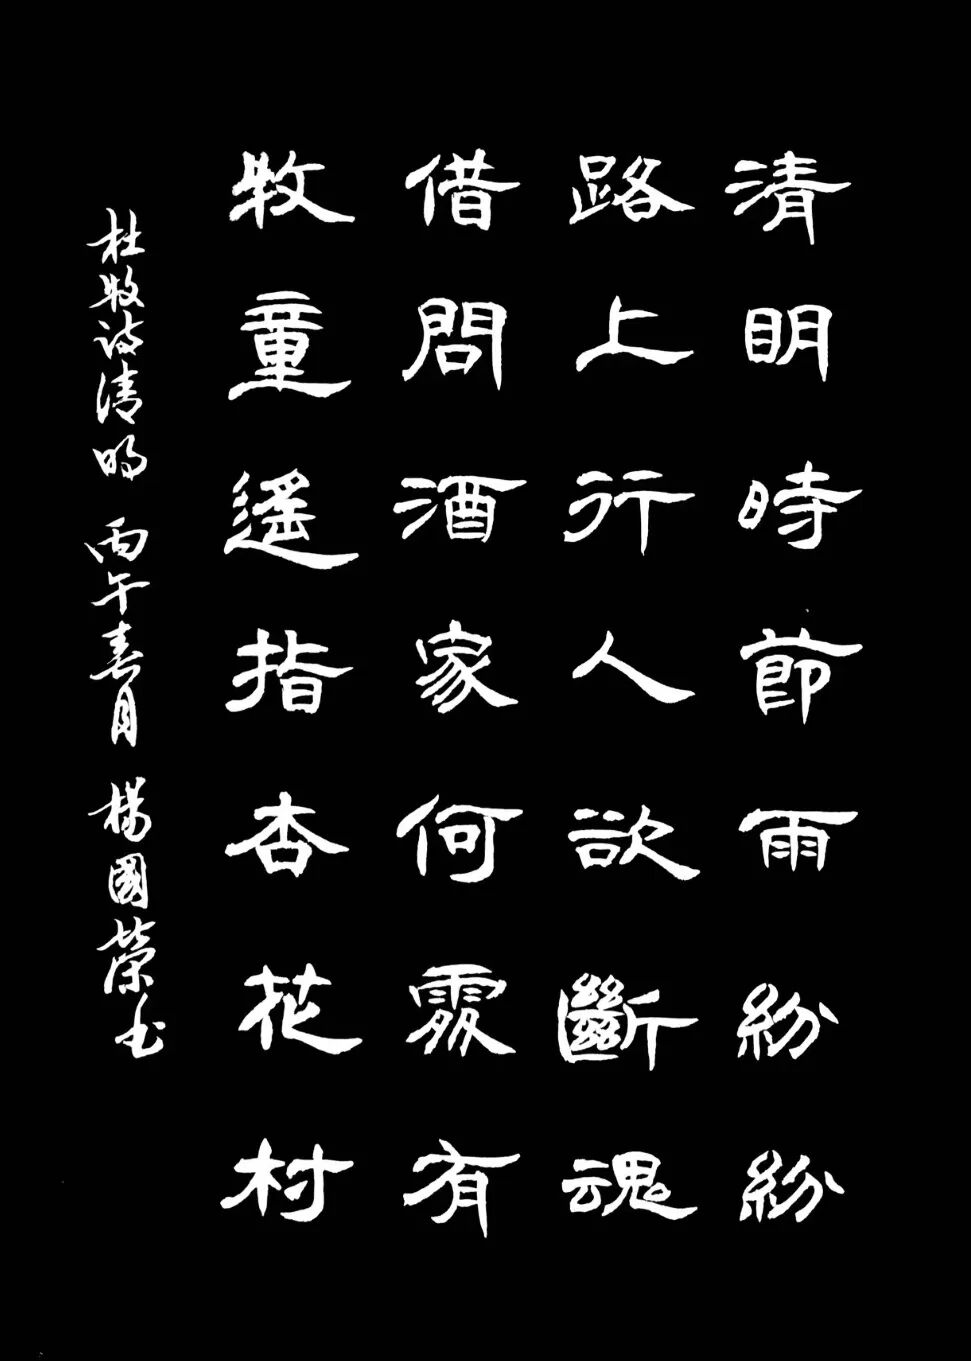 清明時節雨紛紛
路上行人欲斷魂
借問酒家何處有
牧童遙指杏花村
杜牧诗清明 丙午春月 楊國榮书